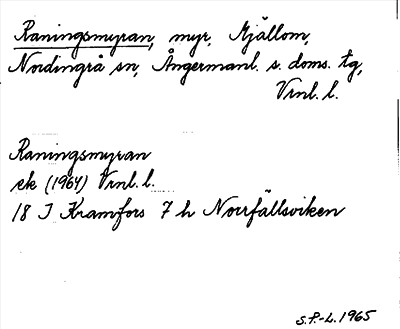 Raningsmyran, myr, Mjällom,
Nordingrå sn, Ångermanl. s. doms. tg,
Vrnl. l.
Raningsmyran
ek (1964) Vrnl. l.
18 I Kramfors 7 h Norrfällsviken
S.P.-L. 1965